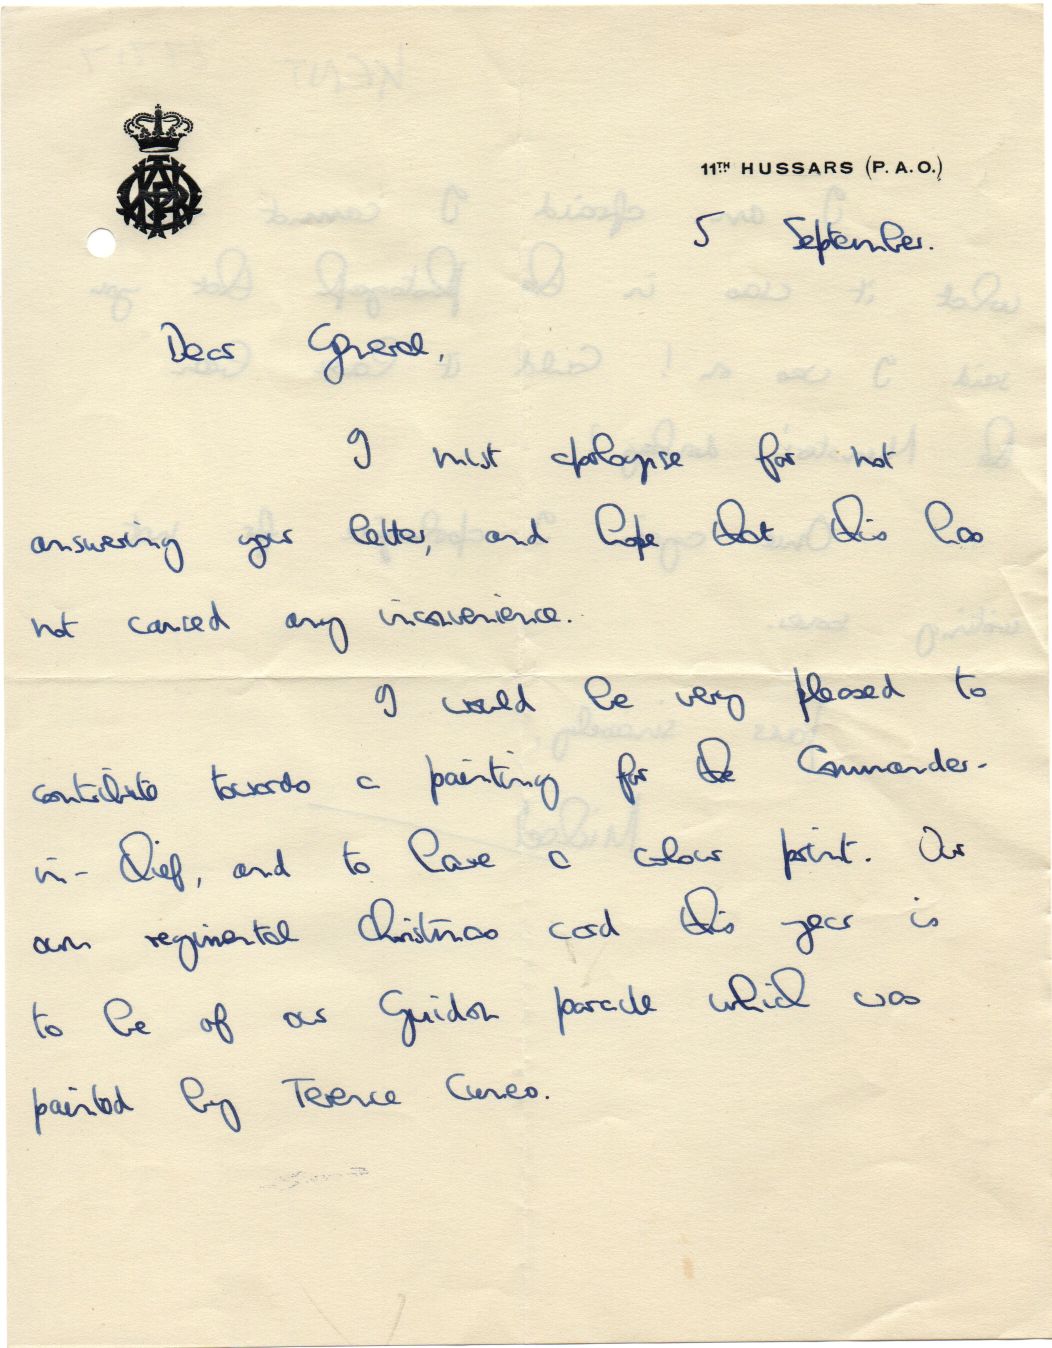 11TH HUSSARS (P.A.O.)
5 September.
Dear General,
I must apologise for not
answering your letter, and hope that this has
not caused any inconvenience.
I would be very pleased to
contribute towards a painting for the Commander-
in-Chief, and to have a colour print. Our
own regimental Christmas card this year is
to be of our Guidon parade which was
painted by Terence Cuneo.